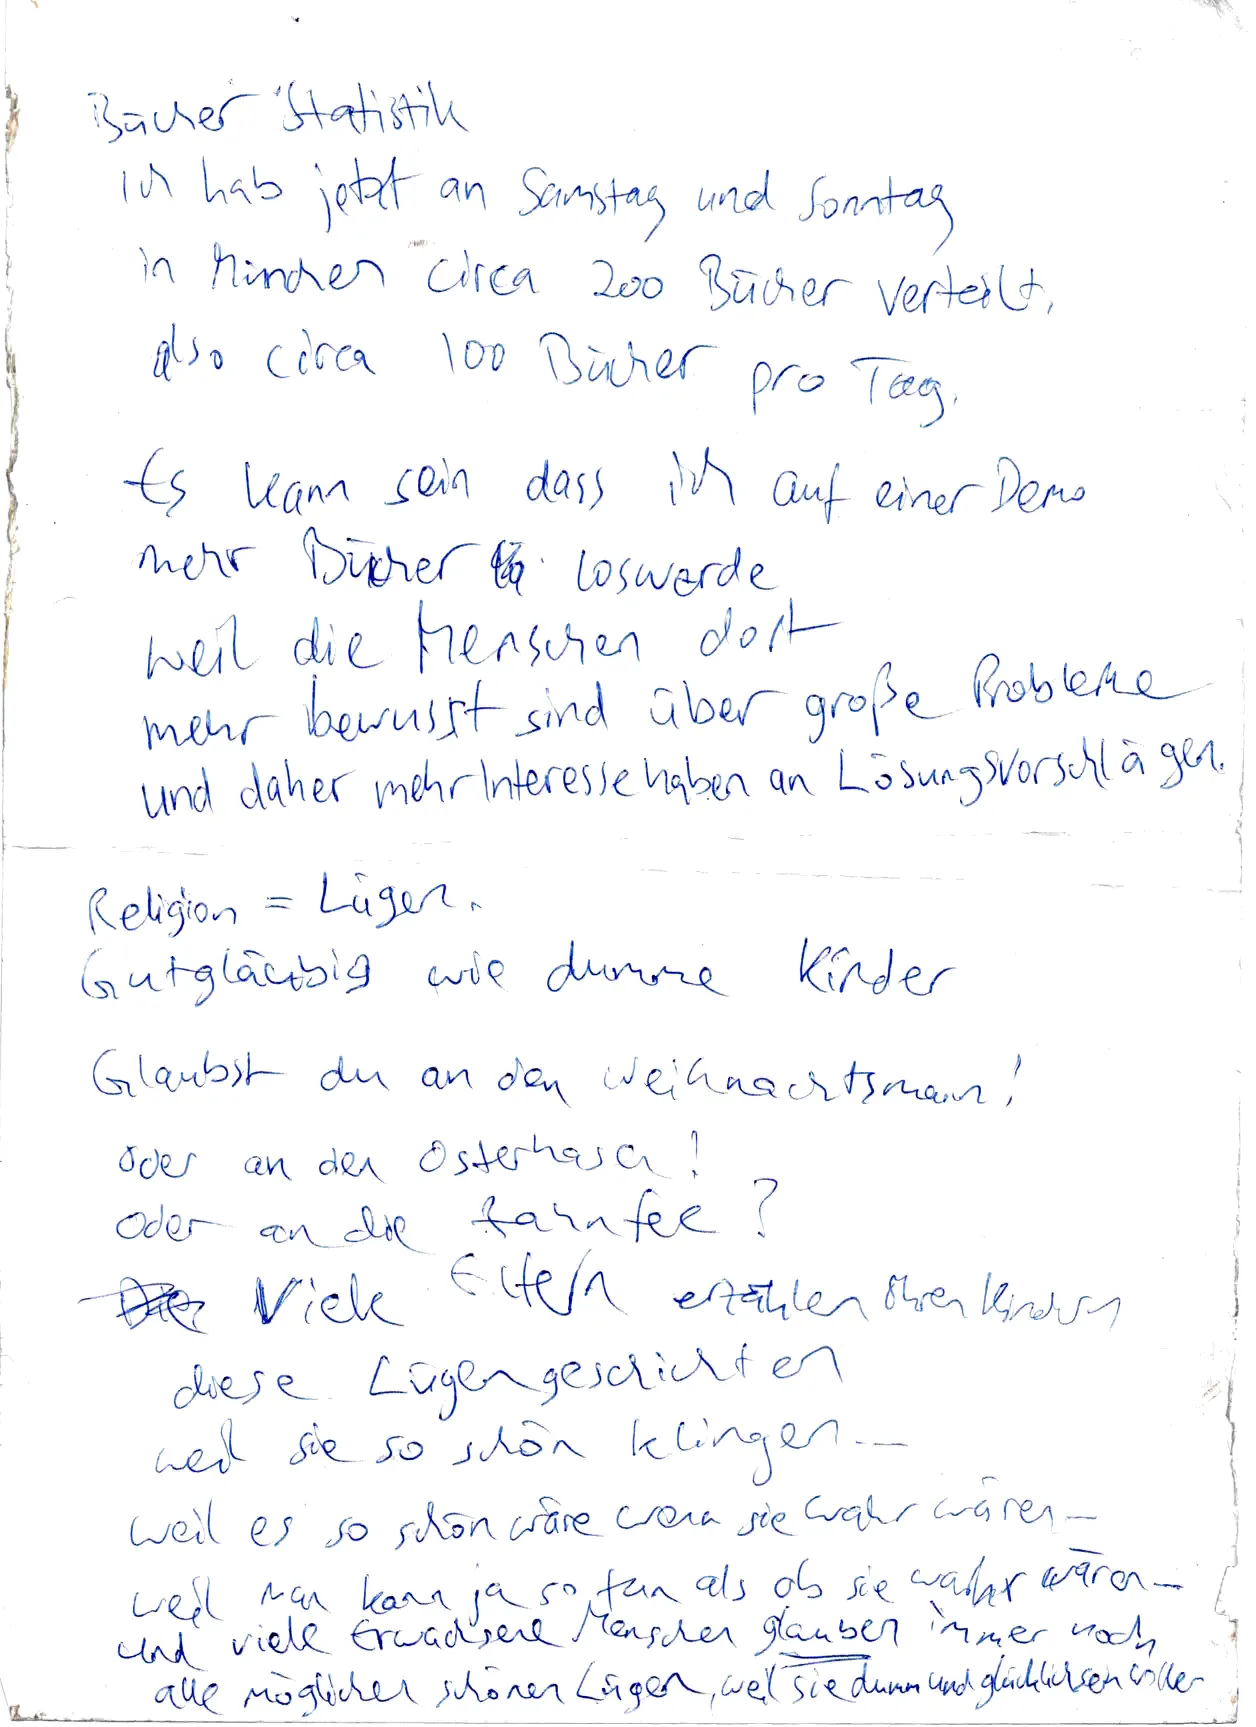 Bücher Statistik
ich hab jetzt an Samstag und Sonntag
in München circa 200 Bücher verteilt,
also circa 100 Bücher pro Tag.
Es kann sein dass ich auf einer Demo
mehr Bücher loswerde
weil die Menschen dort
mehr bewusst sind über große Probleme
und daher mehr Interesse haben an Lösungsvorschlägen.
Religion = Lügen.
Gutgläubig wie dumme Kinder
Glaubst du an den Weihnachtsmann!
oder an den Osterhasen!
oder an die Zahnfee?
Viele Eltern erzählen ihren Kindern
diese Lügengeschichten
weil sie so schön klingen...
weil es so schön wäre wenn sie wahr wären...
weil man kann ja so tun als ob sie wahr wären...
und viele Erwachsene Menschen glauben immer noch
alle möglichen schönen Lügen, weil sie dumm und glücklich sein wollen